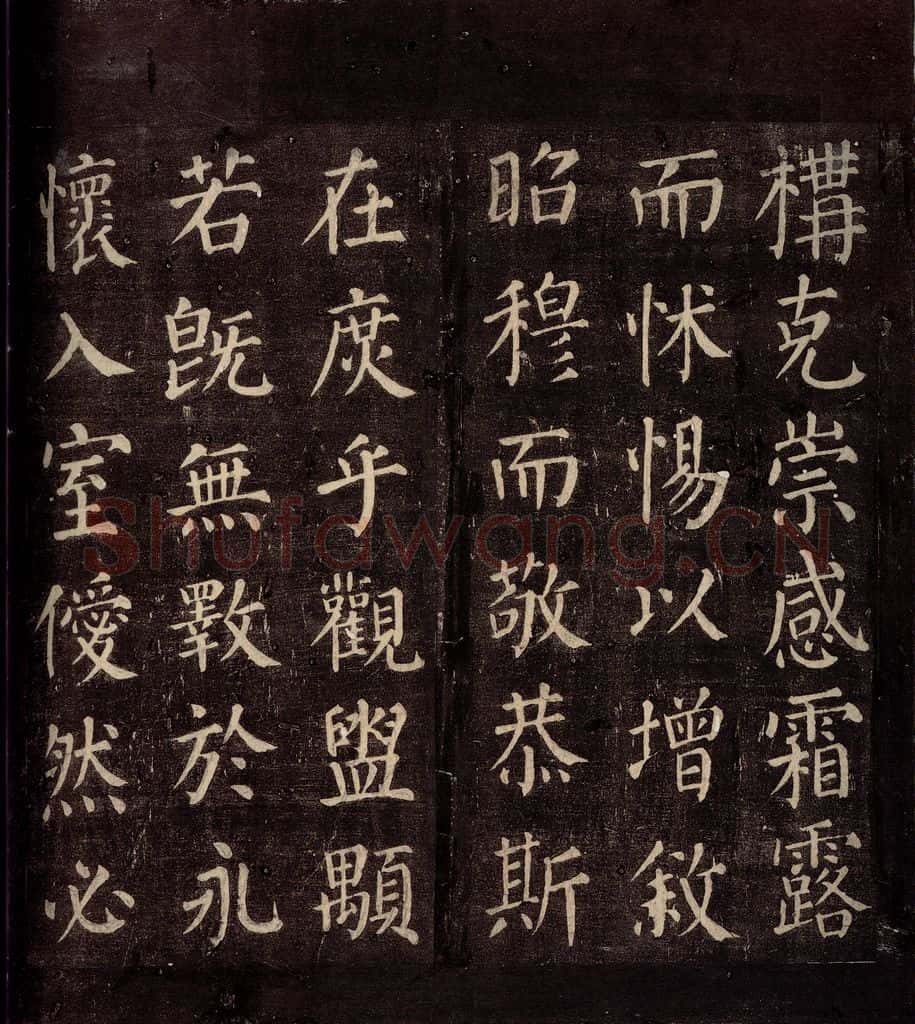 構克崇感霜露
而怵惕以增敘
昭穆而敬恭斯
在庶乎觀盥顒
若既無斁於永
懷入室僾然必
Shufawang.CN